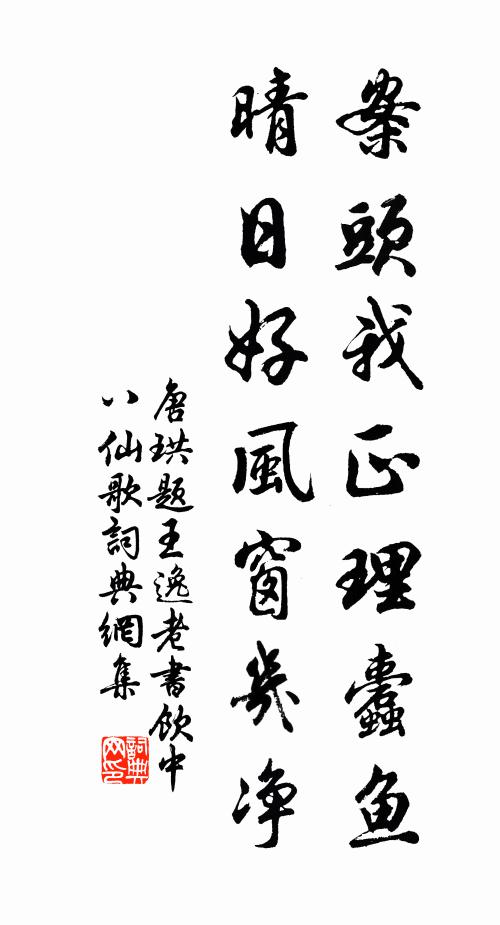 案頭我正理蠹魚
晴日好風窗幾净
唐珙题王逸老書飲中
八仙歌詞典網集
詞典
网印